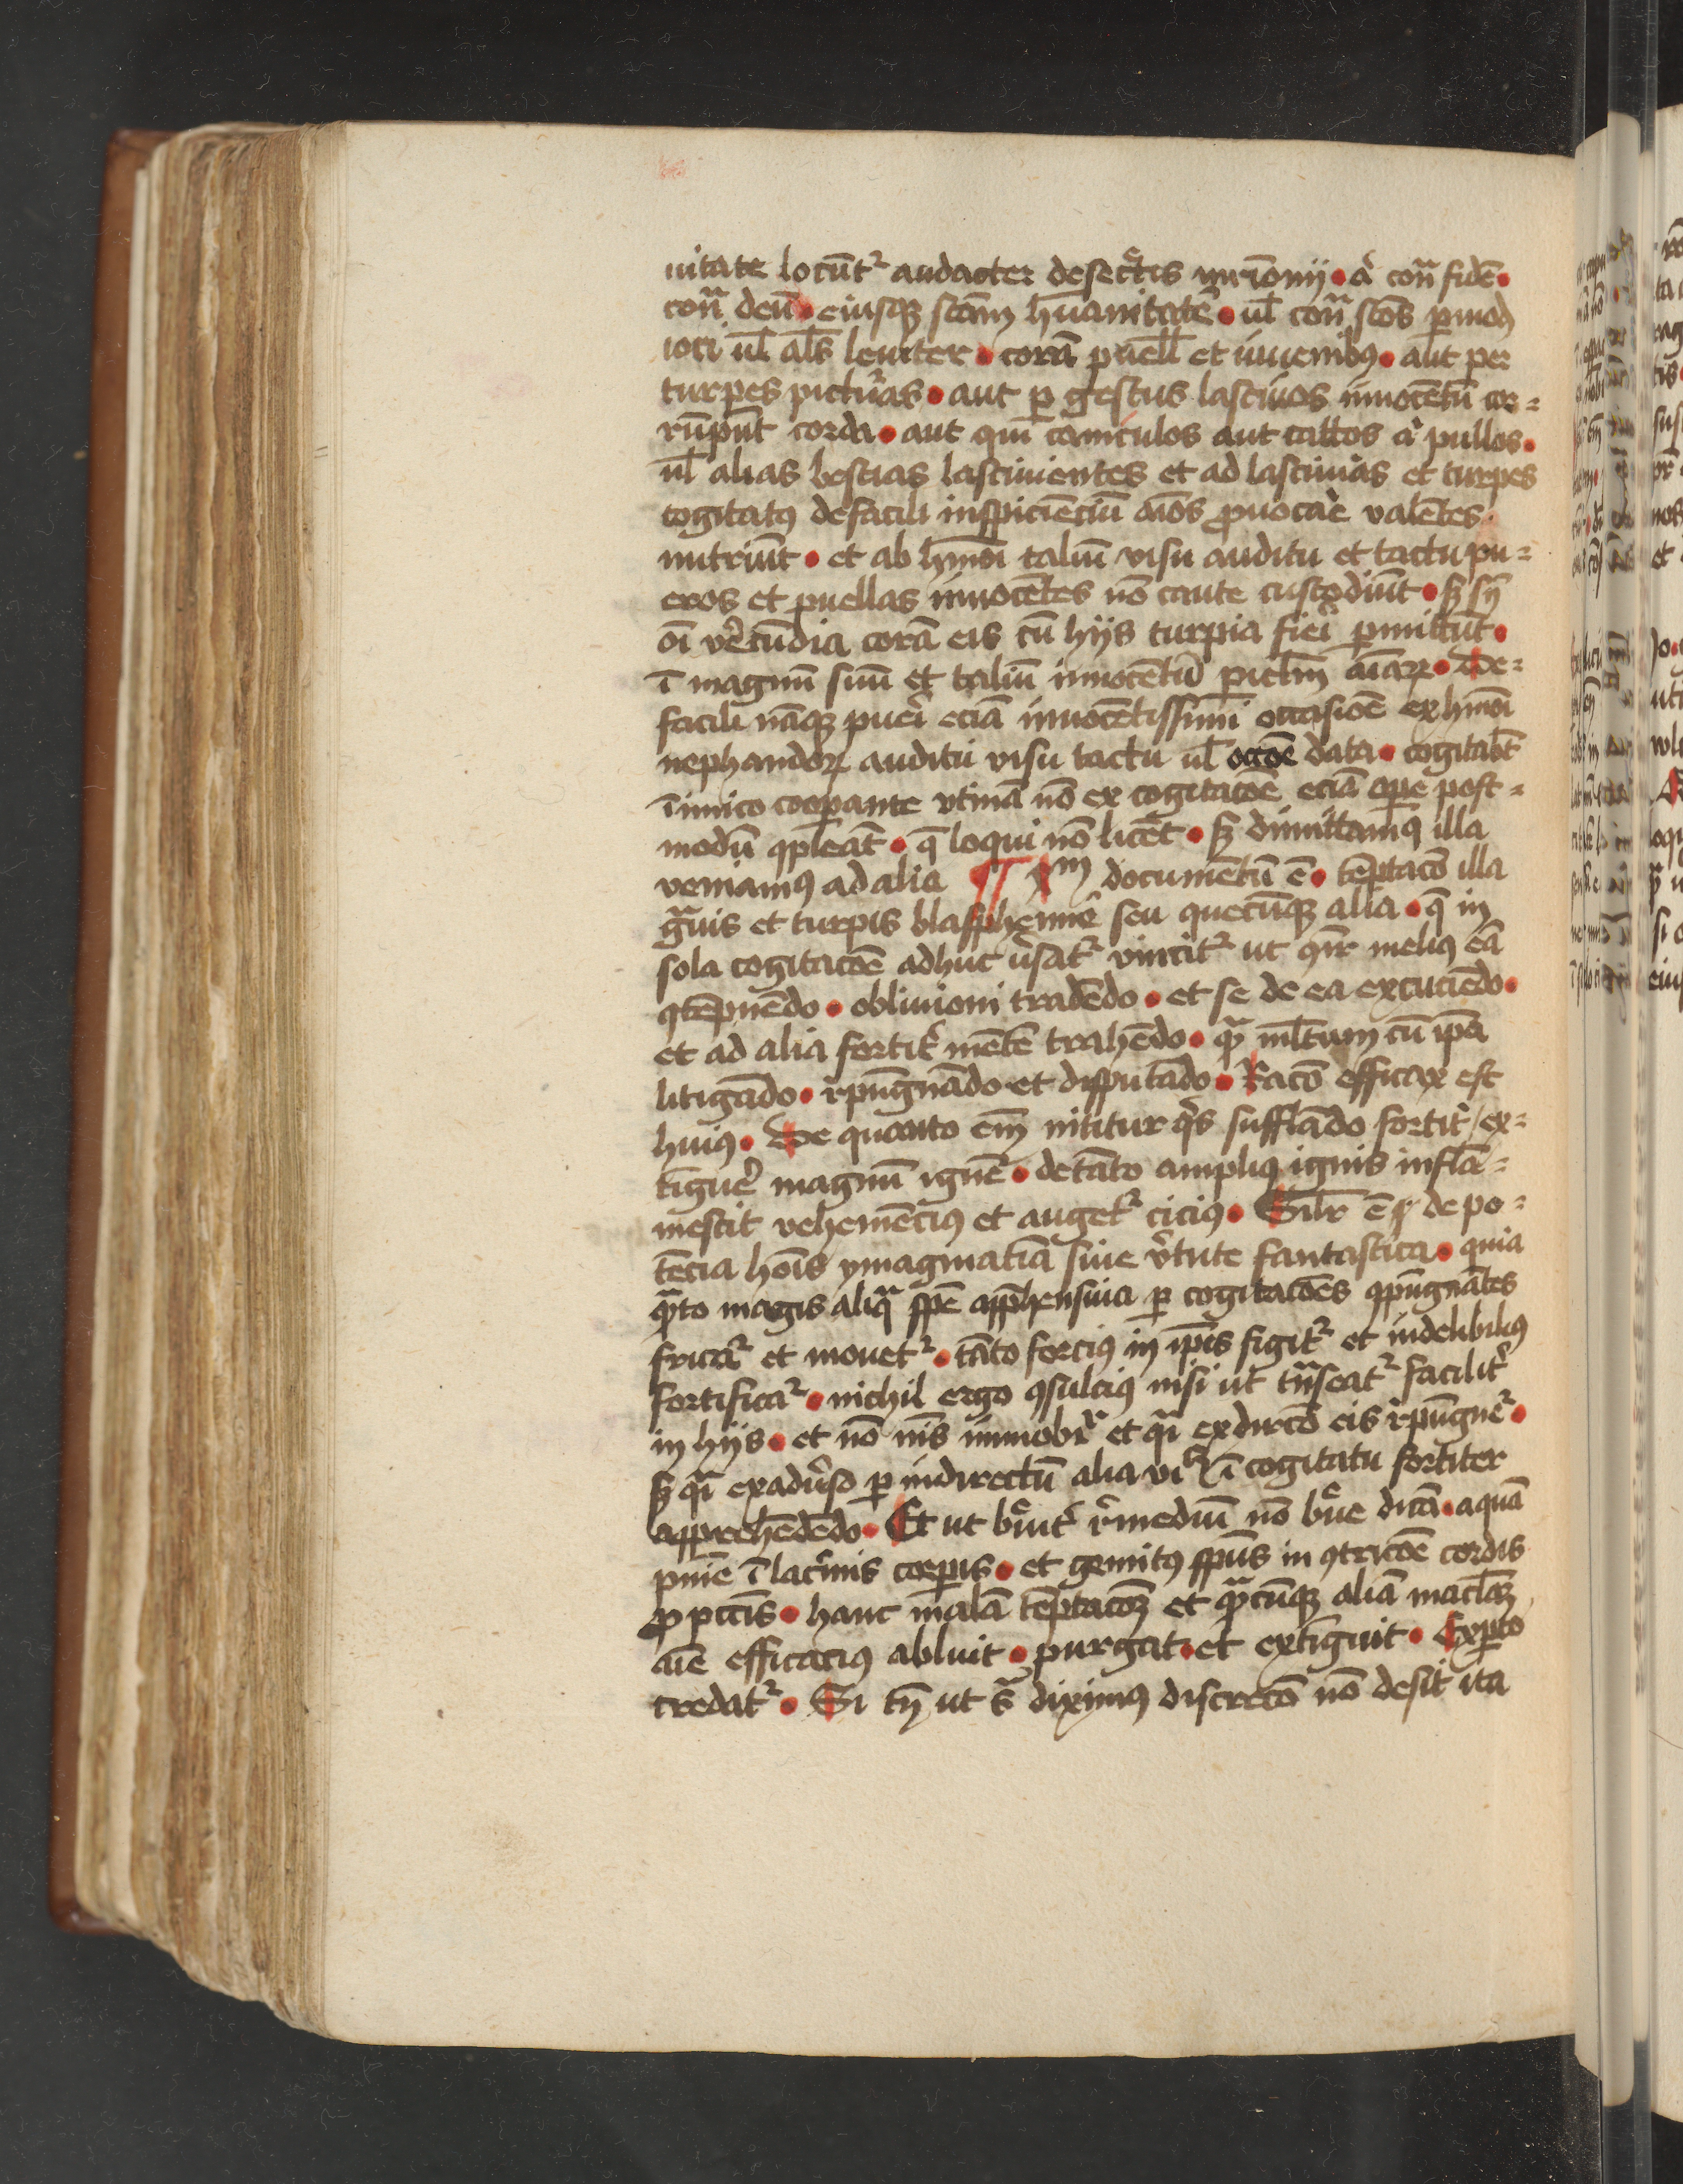 uitate locūtʳ audacter de secͬtis mr̄ionij • a᷑ conͣ fidē •
conͣ deū • eiusqꝫ scām hūanitatē • ul̄ conͣ scōs ꝑ modꝫ
ioci ul̄ al̄s leuiter • corā puell̄ et iuuenibꝰ • aut per
turpes picturas • aut ꝑ gestus lasciuos innocētū cor=
rūpūt corda • aut qui᷑ caniculos aut cattos a᷑ pullos •
ul̄ alias bestias lasciuientes et ad lasciuias et turpes
cogitatꝰ de facili inspiciēciū aīos ꝓuocar̄e valētes
nutriūt • et ab hmōi taliū visu auditu et tactu pu=
eros et puellas innocētes nō caute custodiūt • sꝫ sn̄
oī ve᷑cūdia corā eis cū hijs turpia fie᷑i ꝑmittūt •
ī magnū suū et taliū innocētū ꝑicl̄m aīaꝝ • De=
facili nāqꝫ pue᷑i eciā innocētissimi occasiōe ex hmōi
nephandoꝝ auditu visu tactu ul̄ occōe data • cogitāt
īimico cooꝑante vtinā nō ex cogitacōe eciā oꝑe post=
modū ꝯpleāt • q̄ loqui nō licet • sꝫ dimittamꝰ illa
veniamꝰ ad alia ¶ xᵐ documētū ē • tēptacō illa
gͣuis et turpis blasphemie seu quecūqꝫ alia • q̄ in
sola cogitacōe adhuc ve᷑satʳ vincitʳ ut ꝯīr meliꝰ eā
ꝯtēpnēdo • obliuioni tradēdo • et se de ea excuciēdo •
et ad alia fortit᷑ mētē trahēdo • qͣ ml̄tum cū ip̄a
litigādo • r᷑pūgnādo et disputādo • Racō efficax est
huiꝰ • De quanto em̄ nititur qͥs sufflādo fortit᷑ ex=
tīgue᷑ magnū ignē • de tāto ampliꝰ ignis inflā=
mescit vehemēciꝰ et augetʳ ciciꝰ • Sil̄r ē de po=
tēcia hoīs ymaginatīa siue v᷑tute fantastica • quia
qͣto magis aliqͣ spē app̄hensiua ꝑ cogitacōes ꝯpūgnātes
fricaʳ et mouetʳ • tāto forciꝰ in ip̄is figitʳ et indelibiliꝰ
fortificaʳ • nichil ergo ꝯsulciꝰ nisi ut tn̄seatʳ facilit᷑
in hijs • et nō et ex dircō eis r᷑pūgneʳ •
sꝫ qͣ exadu᷑so ꝑ indirectū alia ī cogitatu fortiter
apprehēdēdo • Et ut bͬuit᷑ r᷑mediū nō bͬue dicā • aquā
pnīe ī lac᷑mis corꝑis • et gemitꝰ sp̄us in ꝯtricōe cordis
ꝓ pctīs • hanc malā tēptacōꝫ et qͣcūqꝫ aliā macl̄aꝫ
aīe efficaciꝰ abluit • purgat • et extīguit • Exꝑto
credatʳ • Si tn̄ ut sͣ diximꝰ discrecō nō desit ita